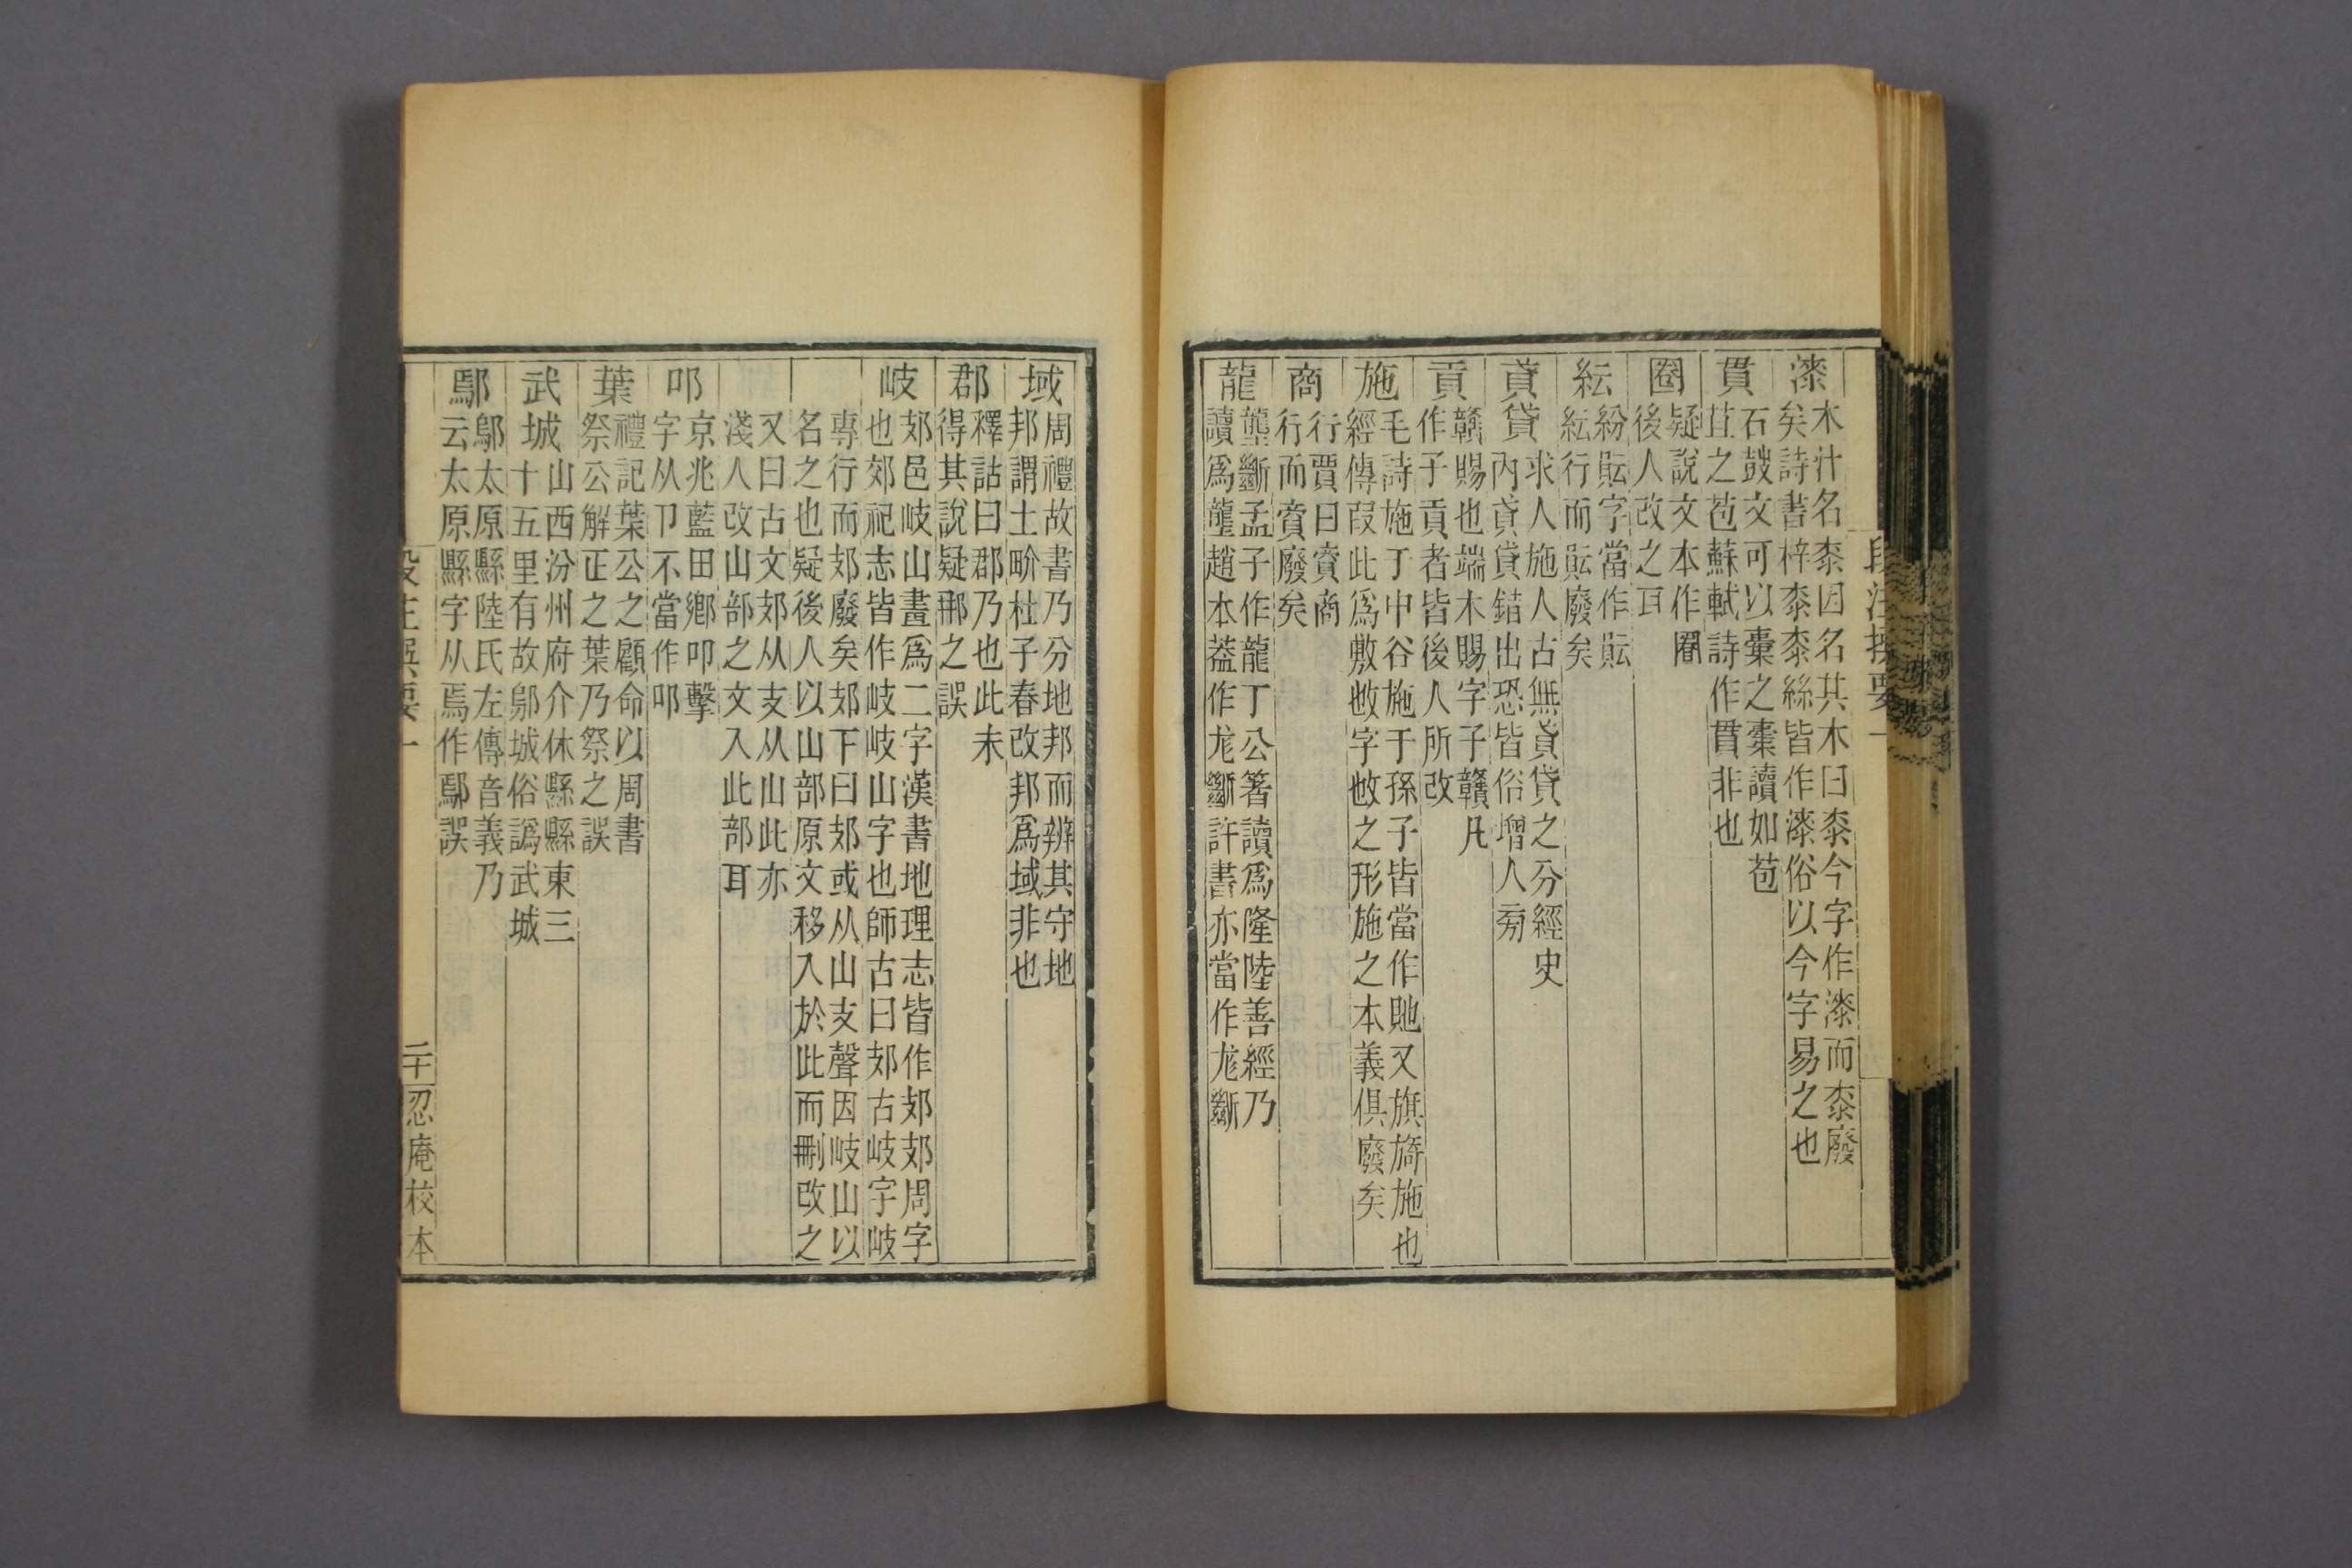 漆
木汁名桼因名其木曰桼今字作漆而桼廢
矣詩書梓桼桼絲皆作漆俗以今字易之也
貫
石鼓文可以橐之橐讀如苞
苴之苞蘇軾詩作貫非也
圈
疑說文本作圂
後人改之耳
紜
紛䰟字當作䰟
紜行而䰟廢矣
貣貸
求人施人古無貣貸之分經史
內貣貸錯出恐皆俗增人旁
貢
贛賜也端木賜字子贛凡
作子貢者皆後人所改
施
毛詩施于中谷施于孫子皆當作貤又旗旖施也
經傳叚此為敷㪗字㪗之形施之本義俱廢矣
商
行賈曰賣商
行而賣廢矣
龍
壟斷孟子作龍丁公箸讀為隆陸善經乃
讀為壟趙本葢作尨斷許書亦當作尨斷
段注撰要一
域
周禮故書乃分地邦而辨其守地
邦謂土畍杜子春改邦為域非也
郡
釋詁曰郡乃也此未
得其說疑郍之誤
岐
郊邑岐山畫為二字漢書地理志皆作郊郊周字
也郊祀志皆作岐岐山字也師古曰郊古岐字岐
專行而郊廢矣郊下曰郊或从山支聲因岐山以
名之也疑後人以山部原文移入於此而刪改之
又曰古文郊从支从山此亦
淺人改山部之文入此部耳
叩
京兆藍田鄉叩擊
字从卩不當作叩
葉
禮記葉公之顧命以周書
祭公解正之葉乃祭之誤
武城
山西汾州府介休縣縣東三
十五里有故鄔城俗譌武城
鄢
鄔太原縣陸氏左傳音義乃
云太原縣字从焉作鄢誤
二十
忍庵校本